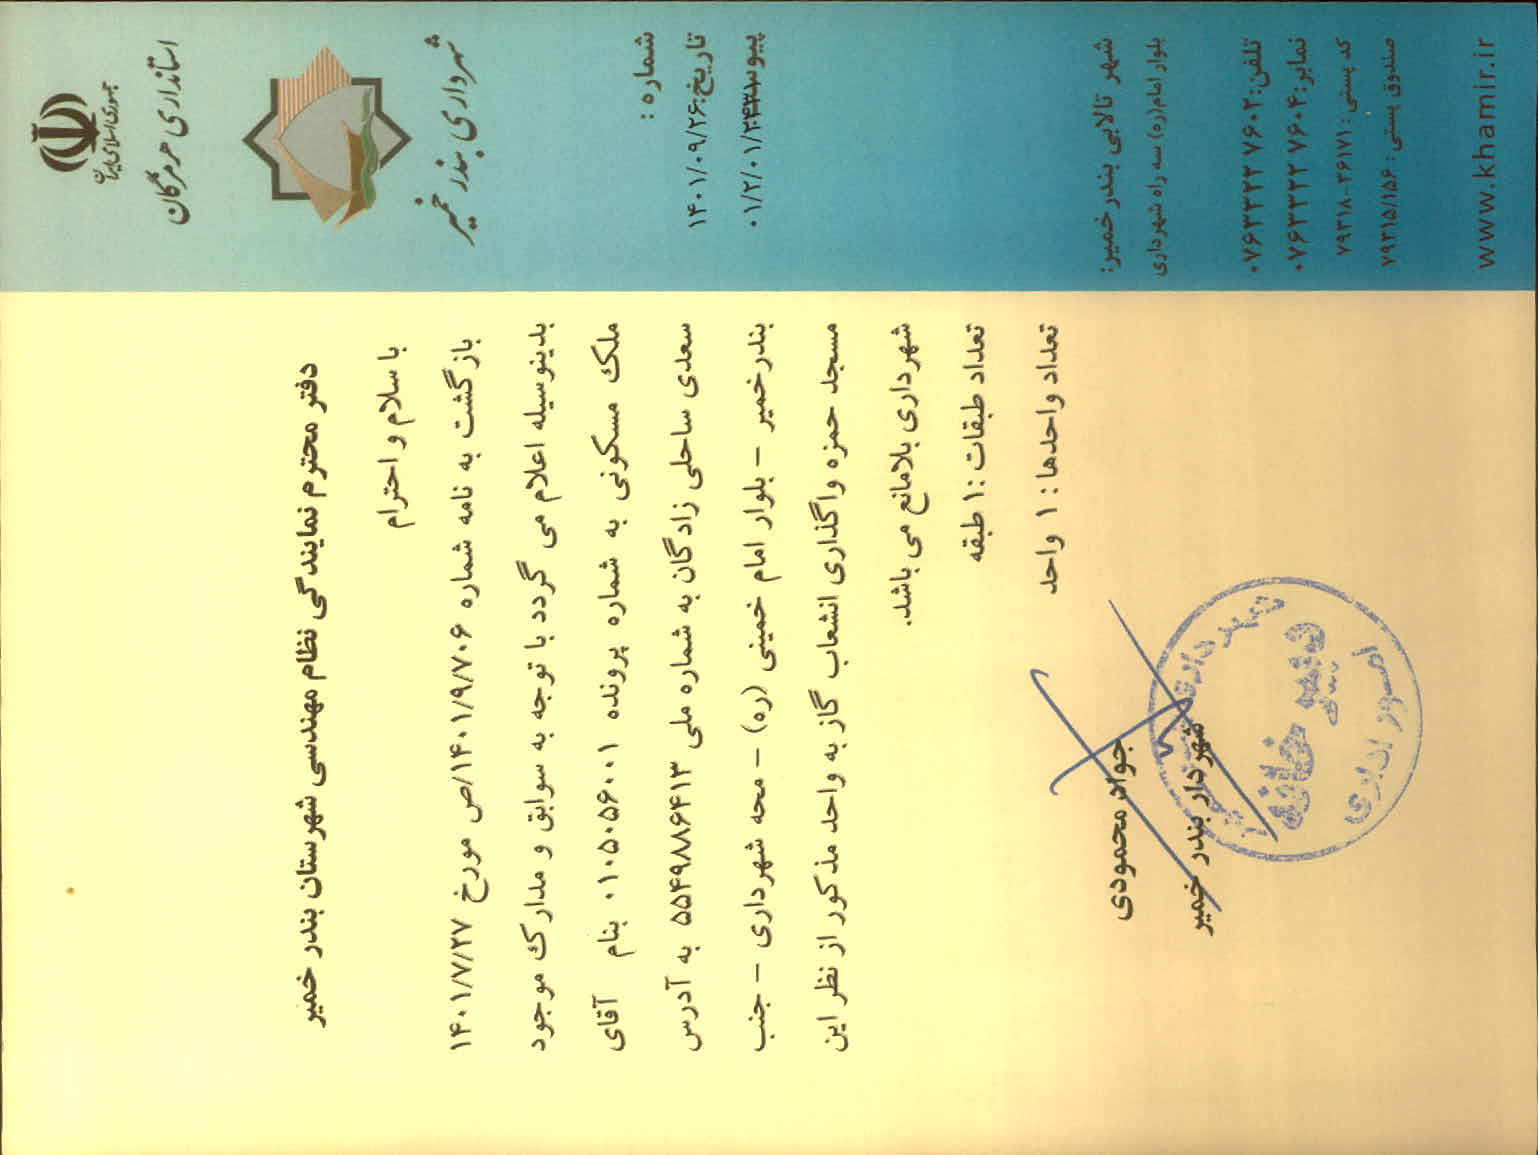 جمهوری اسلامی ایران
استانداری هرمزگان
شهرداری بندر خمیر
شماره :
تاریخ: ۱۴۰۱/۰۹/۲۶
پیوست
۰۱/۲/۰۱/۲۴۳۱
دفتر محترم نمایندگی نظام مهندسی شهرستان بندر خمیر
با سلام و احترام
بازگشت به نامه شماره ۱۴۰۱/۹/۷۰۶/ص مورخ ۱۴۰۱/۷/۲۷
بدینوسیله اعلام می گردد با توجه به سوابق و مدارک موجود
ملک مسکونی به شماره پرونده ۰۱۰۵۰۵۶۰۰۱ بنام آقای
سعدی ساحلی زادگان به شماره ملی ۵۵۴۹۸۸۶۴۱۳ به آدرس
بندرخمیر – بلوار امام خمینی (ره) – محه شهرداری – جنب
مسجد حمزه واگذاری انشعاب گاز به واحد مذکور از نظر این
شهرداری بلامانع می باشد.
تعداد طبقات :۱ طبقه
تعداد واحدها : ۱ واحد
جواد محمودی
شهردار بندر خمیر
دبیر خانه
امور اداری
شهر تالابی بندرخمیر:
بلوار امام(ره) سه راه شهرداری
تلفن: ۰۷۶۳۳۲۲ ۷۶۰۲
نمابر: ۰۷۶۳۳۲۲ ۷۶۰۴
کد پستی : ۷۹۳۱۸-۲۶۱۷۱
صندوق پستی : ۷۹۳۱۵/۱۵۶
www.khamir.ir